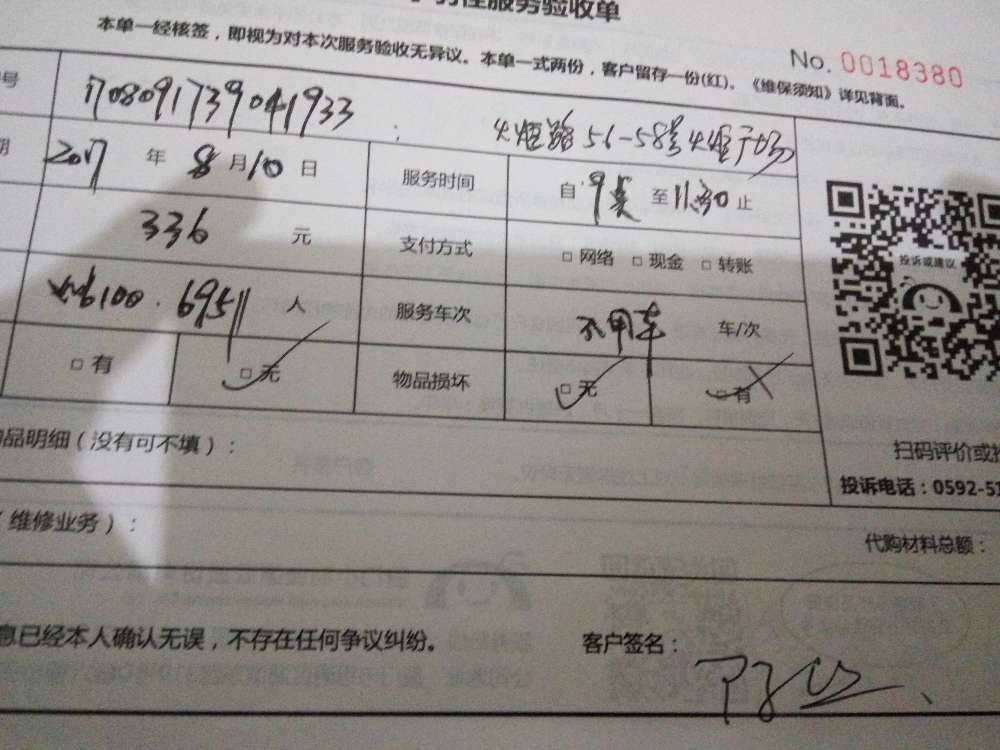 性服务验收单
本单一经核签，即视为对本次服务验收无异议。本单一式两份，客户留存一份(红)。《维保须知》详见背面。
No. 0018380
号 1708091739041933 : 火炬路56-58号火炬广场
期 2017 年 8 月 10 日 服务时间 自 9点 至 11:30 止
336 元 支付方式 □ 网络 □ 现金 □ 转账
6100 . 69511 人 服务车次 不用车 车/次
□ 有 □ 无 物品损坏 □ 无 □ 有
投诉或建议
品明细（没有可不填）：
扫码评价或投
投诉电话：0592-51
（维修业务）：
代购材料总额：
息已经本人确认无误，不存在任何争议纠纷。 客户签名：